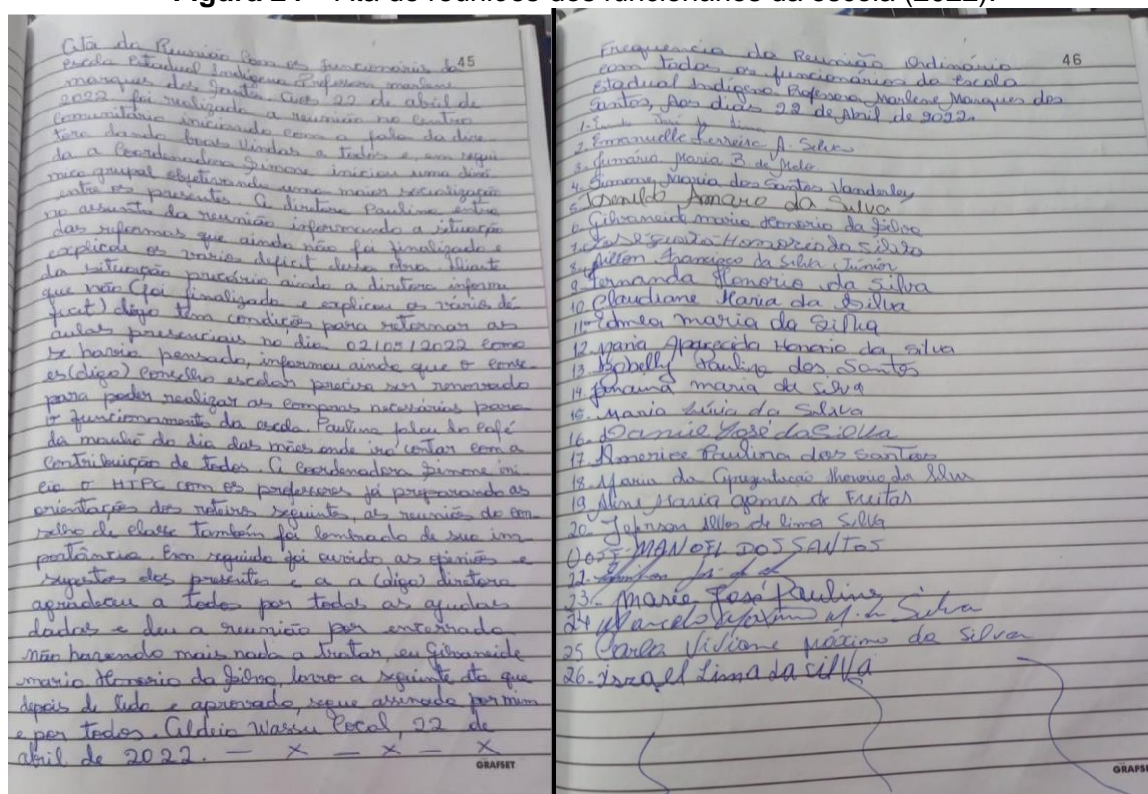 Ata da Reunião com os funcionários da 45
escola Estadual Indígena Professora marlene
marques dos Santos. Aos 22 de abril de
2022 foi realizada a reunião no centro
comunitário iniciando com a fala da dire
tora dando boas vindas a todos e, em segui
da a Coordenadora Simone iniciou uma dinâ
mica grupal objetivando uma maior socialização
entre os presentes. A diretora Paulina entra
no assunto da reunião informando a situação
das reformas que ainda não foi finalizado e
explicou os vários deficit dessa obra. Diante
da situação precária ainda a diretora informa
que não (foi finalizada e explicou os vários dé
ficit) digo tem condições para retornar as
aulas presenciais no dia 02/05/2022 como
se havia pensado, informou ainda que o conse
es(digo) conselho escolar precisa ser renovado
para poder realizar as compras necessárias para
o funcionamento da escola. Paulina falou do café
da manhã do dia das mães onde irá contar com a
contribuição de todos. A coordenadora Simone ini
cio o HTPC com os professores já preparando as
orientações dos roteiros seguintes, as reuniões do con
selho de classe também foi lembrado de sua im
portância. Em seguida foi ouvido as opiniões e
sugestões dos presentes e a a (digo) diretora
agradeceu a todos por todas as ajudas
dadas e deu a reunião por encerrada
não havendo mais nada a tratar, eu Gilvaneide
maria Honorio da Silva, lavro a seguinte ata que
depois de lida e aprovada, segue assinada por mim
e por todos. Aldeia Wassu Cocal, 22 de
abril de 2022. — x — x — x
GRAFSET
Frequencia da Reunião Ordinária 46
com todos os funcionários da Escola
Estadual Indígena Professora Marlene Marques dos
Santos, Aos dias 22 de Abril de 2022.
1.
2. Emanuelle Ferreira A. Silva
3. Jumária Maria B. de Melo
4. Simone Maria dos Santos Vanderley
5. Josenildo Amaro da Silva
6. Gilvaneide maria Honorio da Silva
7. Honorio da Silva
8. Ailton Francisco da Silva Júnior
9. Fernanda Honorio da Silva
10. Claudiane Maria da Silva
11. Edmea maria da Silva
12. Maria Aparecida Honorio da silva
13. Isobelly Paulina dos Santos
14. Janaina maria da Silva
15. Maria Lívia da Silva
16. José da Silva
17. Americe Paulina dos Santos
18. Maria da Apresentação Honorio da Silva
19. Aline Maria gomes de Freitas
20. Jeferson de lima Silva
JOSE MANOEL DOS SANTOS
22.
23. Maria José Paulino
24. Marcelo da Silva
25. Carla Viviane Máximo da Silva
26. Izrael Lima da Silva